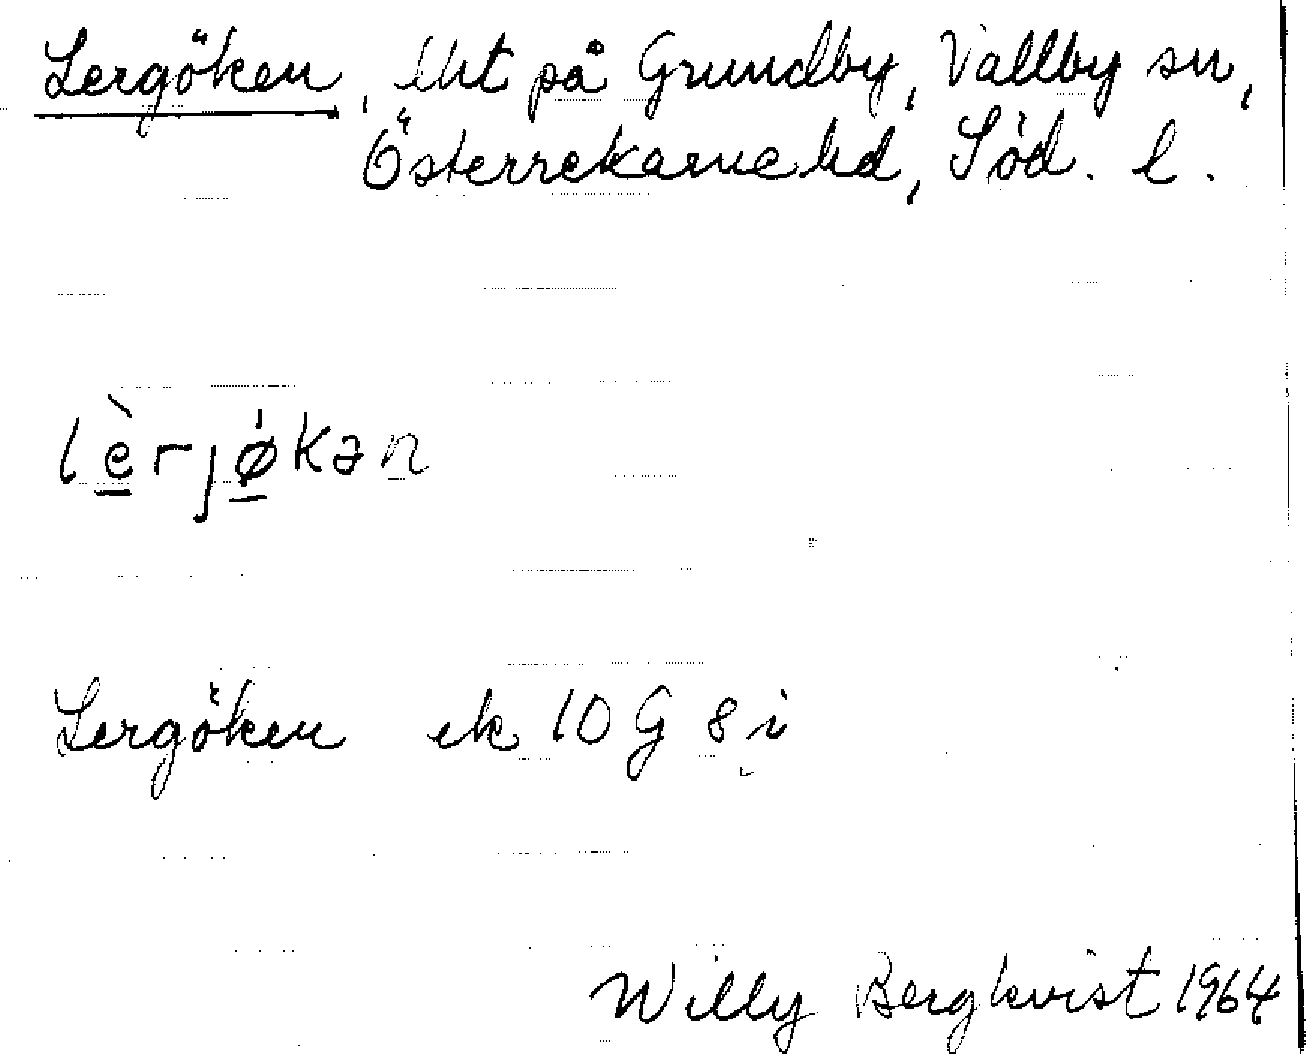 Lergöken, lht på Grundby, Vallby sn,
Österrekarne hd, Söd. l.
lèrjøkən
Lergöken ek 10 G 8 i
Willy Bergkvist 1964